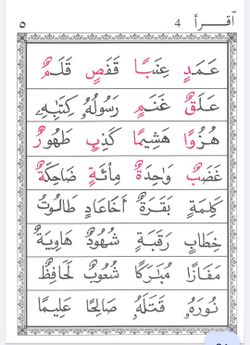 ٥ 4 أقرأ
عَمَدٍ عِنَبًا قَفَصٍ قَلَمٌ
عَلَقٌ غَنَمٍ رَسُولُهُۥ كَتَبَهِۦ
هُزُوًا هَشِيمًا كَذِبٍ طَهُورٌ
غَضَبٌ وَاحِدَةٌ مِائَةٍ ضَاحِكَةٌ
كَلِمَةٍ بَقَرَةٌ أَخَاعَادٍ طَالُوتُ
خِطَابٍ رَقَبَةٍ شُهُودٌ هَاوِيَةٌ
مَفَازًا مُبَٰرَكًا شُعُوبٌ لَحَافِظٌ
نُورَهُۥ قَتَلَهُۥ صَالِحًا عَلِيمًا